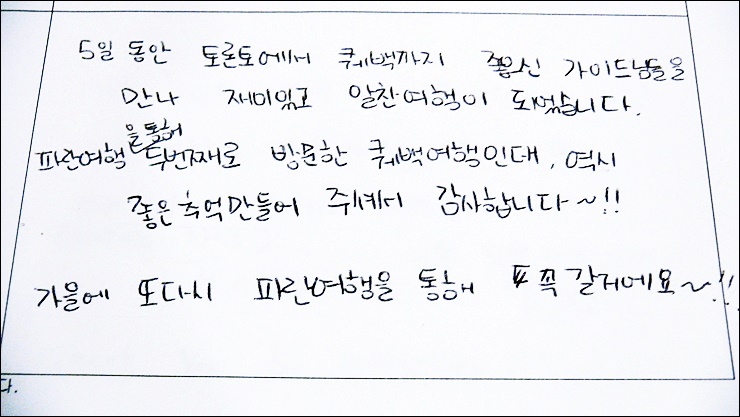 5일 동안 토론토에서 퀘백까지 좋으신 가이드님들을
만나 재미있고 알찬여행이 되었습니다.
을통해
파란여행 두번째로 방문한 퀘백여행인데, 역시
좋은추억만들어 주셔서 감사합니다~!!
가을에 또다시 파란여행을 통해 꼭갈거에요~!!
다.